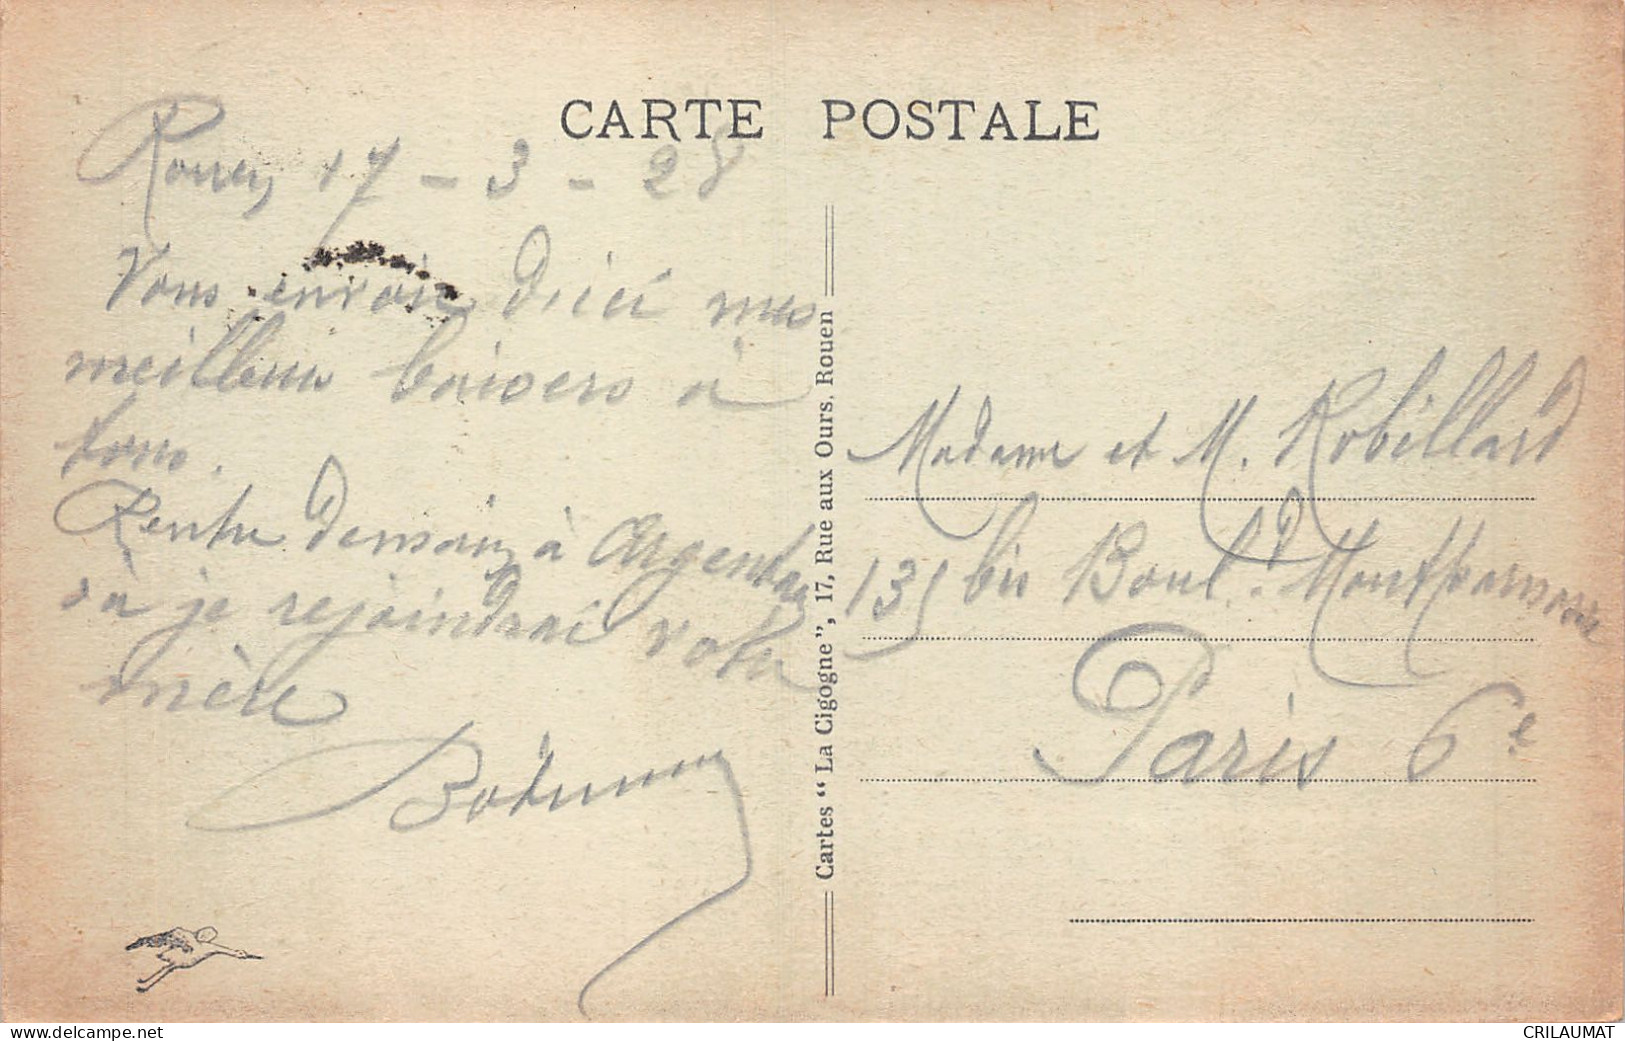 CARTE POSTALE
Rouen, 17 - 3 - 28
Vous envoie d'ici mes
meilleurs baisers à
tous.
Rentre demain à Argentan
où je rejoindrai votre
mère
Cartes “La Cigogne”, 17, Rue aux Ours, Rouen
Madame et M. Robillard
135 bis Boul.d Montparnasse
Paris 6e
www.delcampe.net
CRILAUMAT